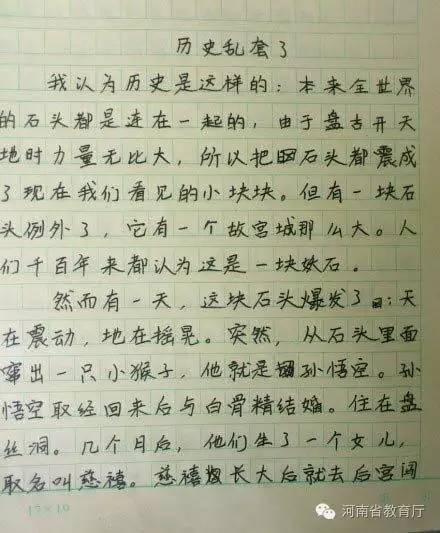 历史乱套了
我认为历史是这样的：本来全世界
的石头都是连在一起的，由于盘古开天
地时力量无比大，所以把石头都震成
了现在我们看见的小块块。但有一块石
头例外了，它有一个故宫城那么大。人
们千百年来都认为这是一块妖石。
然而有一天，这块石头爆发了：天
在震动，地在摇晃。突然，从石头里面
窜出一只小猴子，他就是孙悟空。孙
悟空取经回来后与白骨精结婚。住在盘
丝洞。几个月后，他们生了一个女儿，
取名叫慈禧。慈禧长大后就去后宫闯
17×10
河南省教育厅